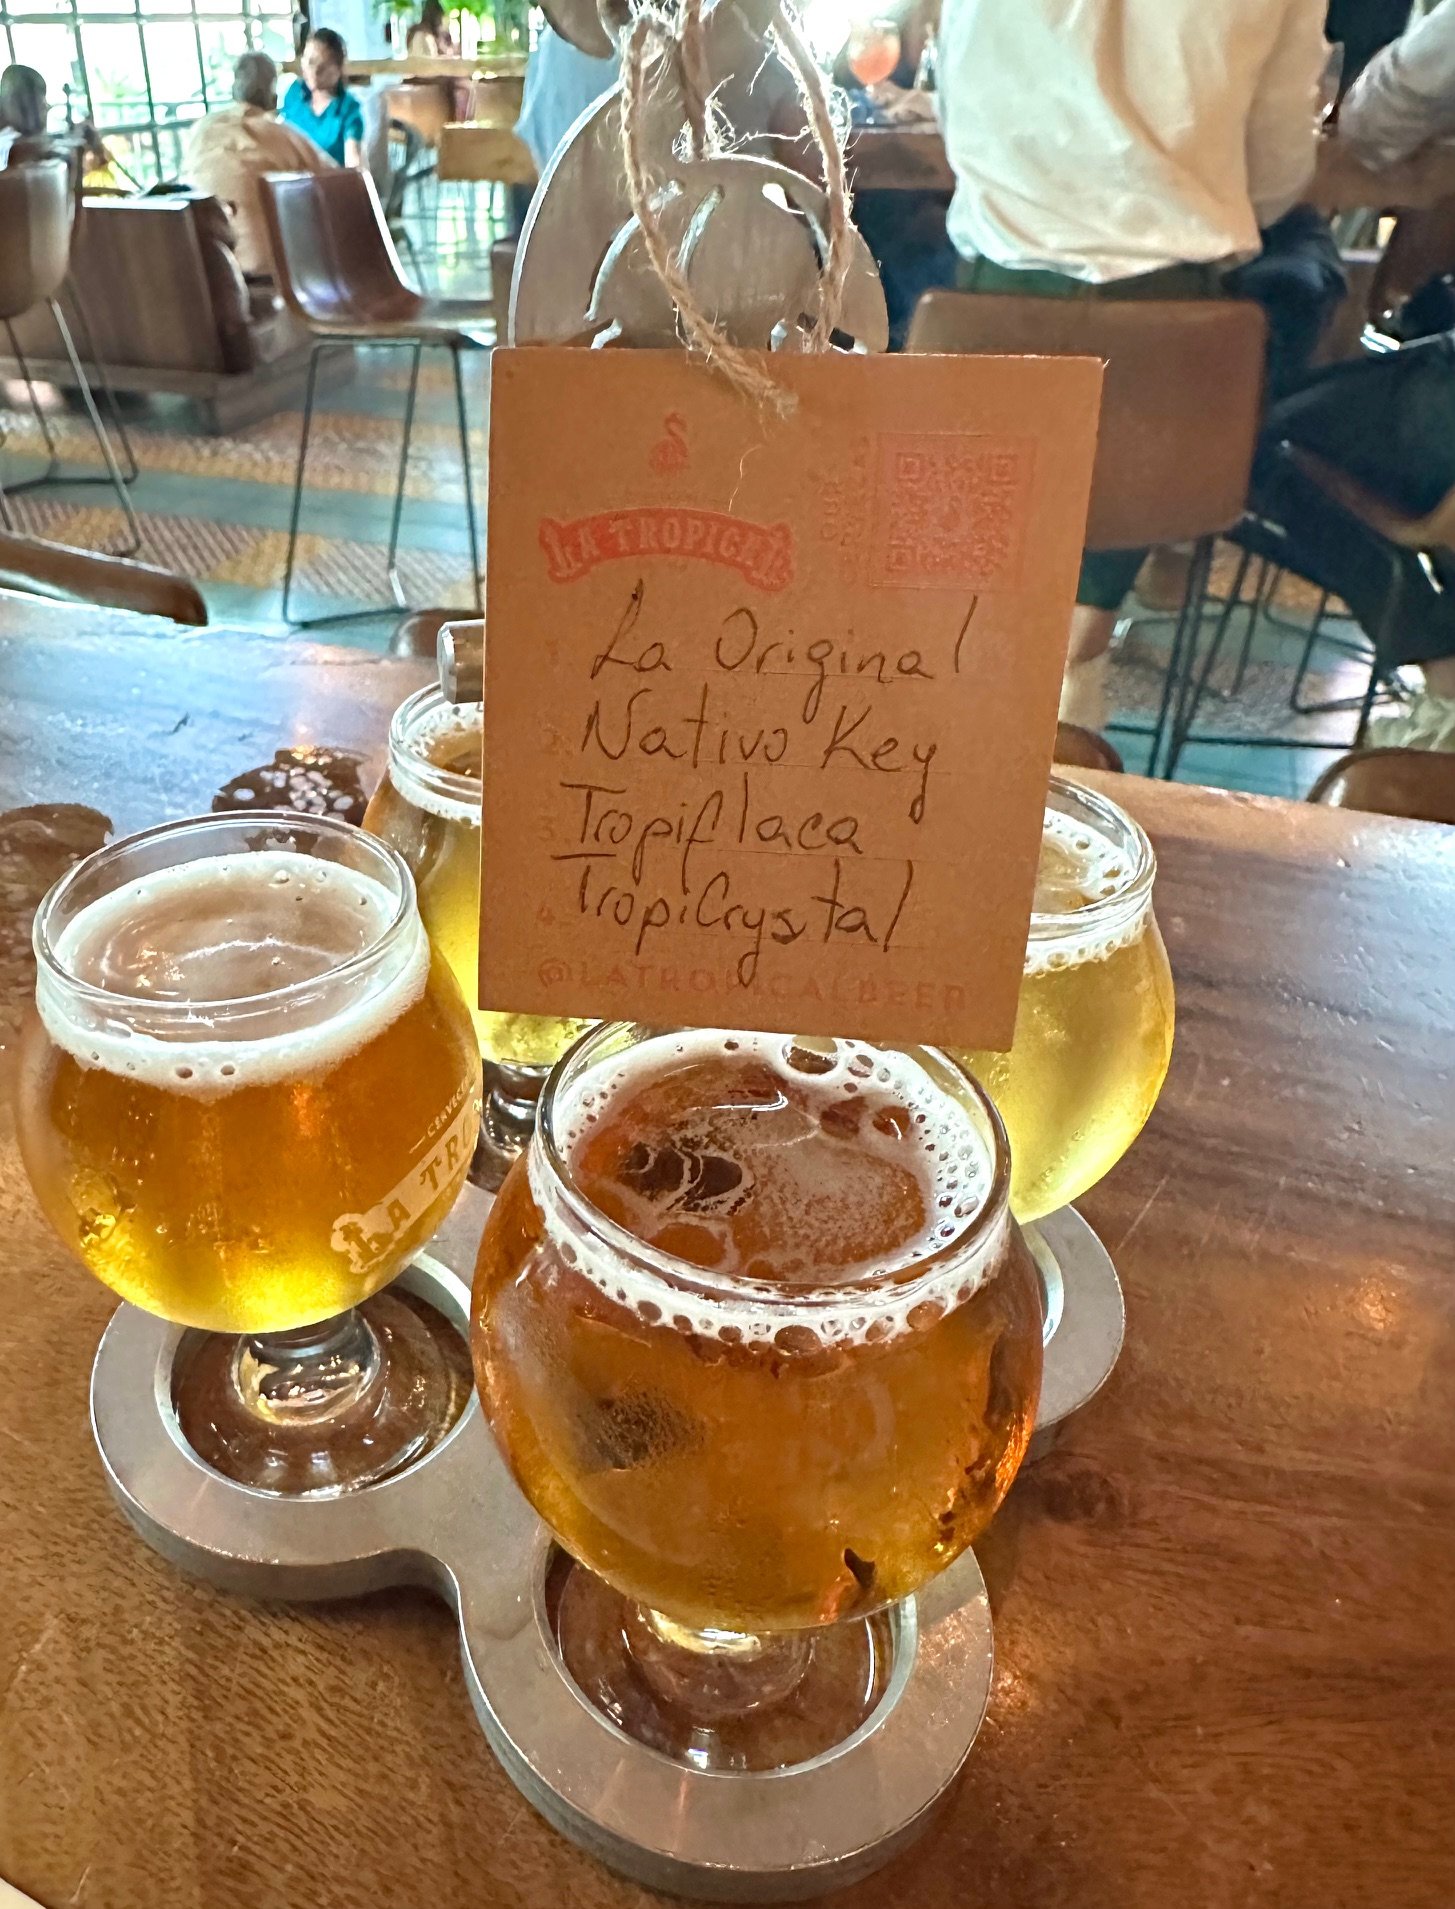 LA TROPICAL
La Original
2. Nativo Key
3. Tropiflaca
4. TropiCrystal
@LATROPICALBEER
CERVECE
LA TRO